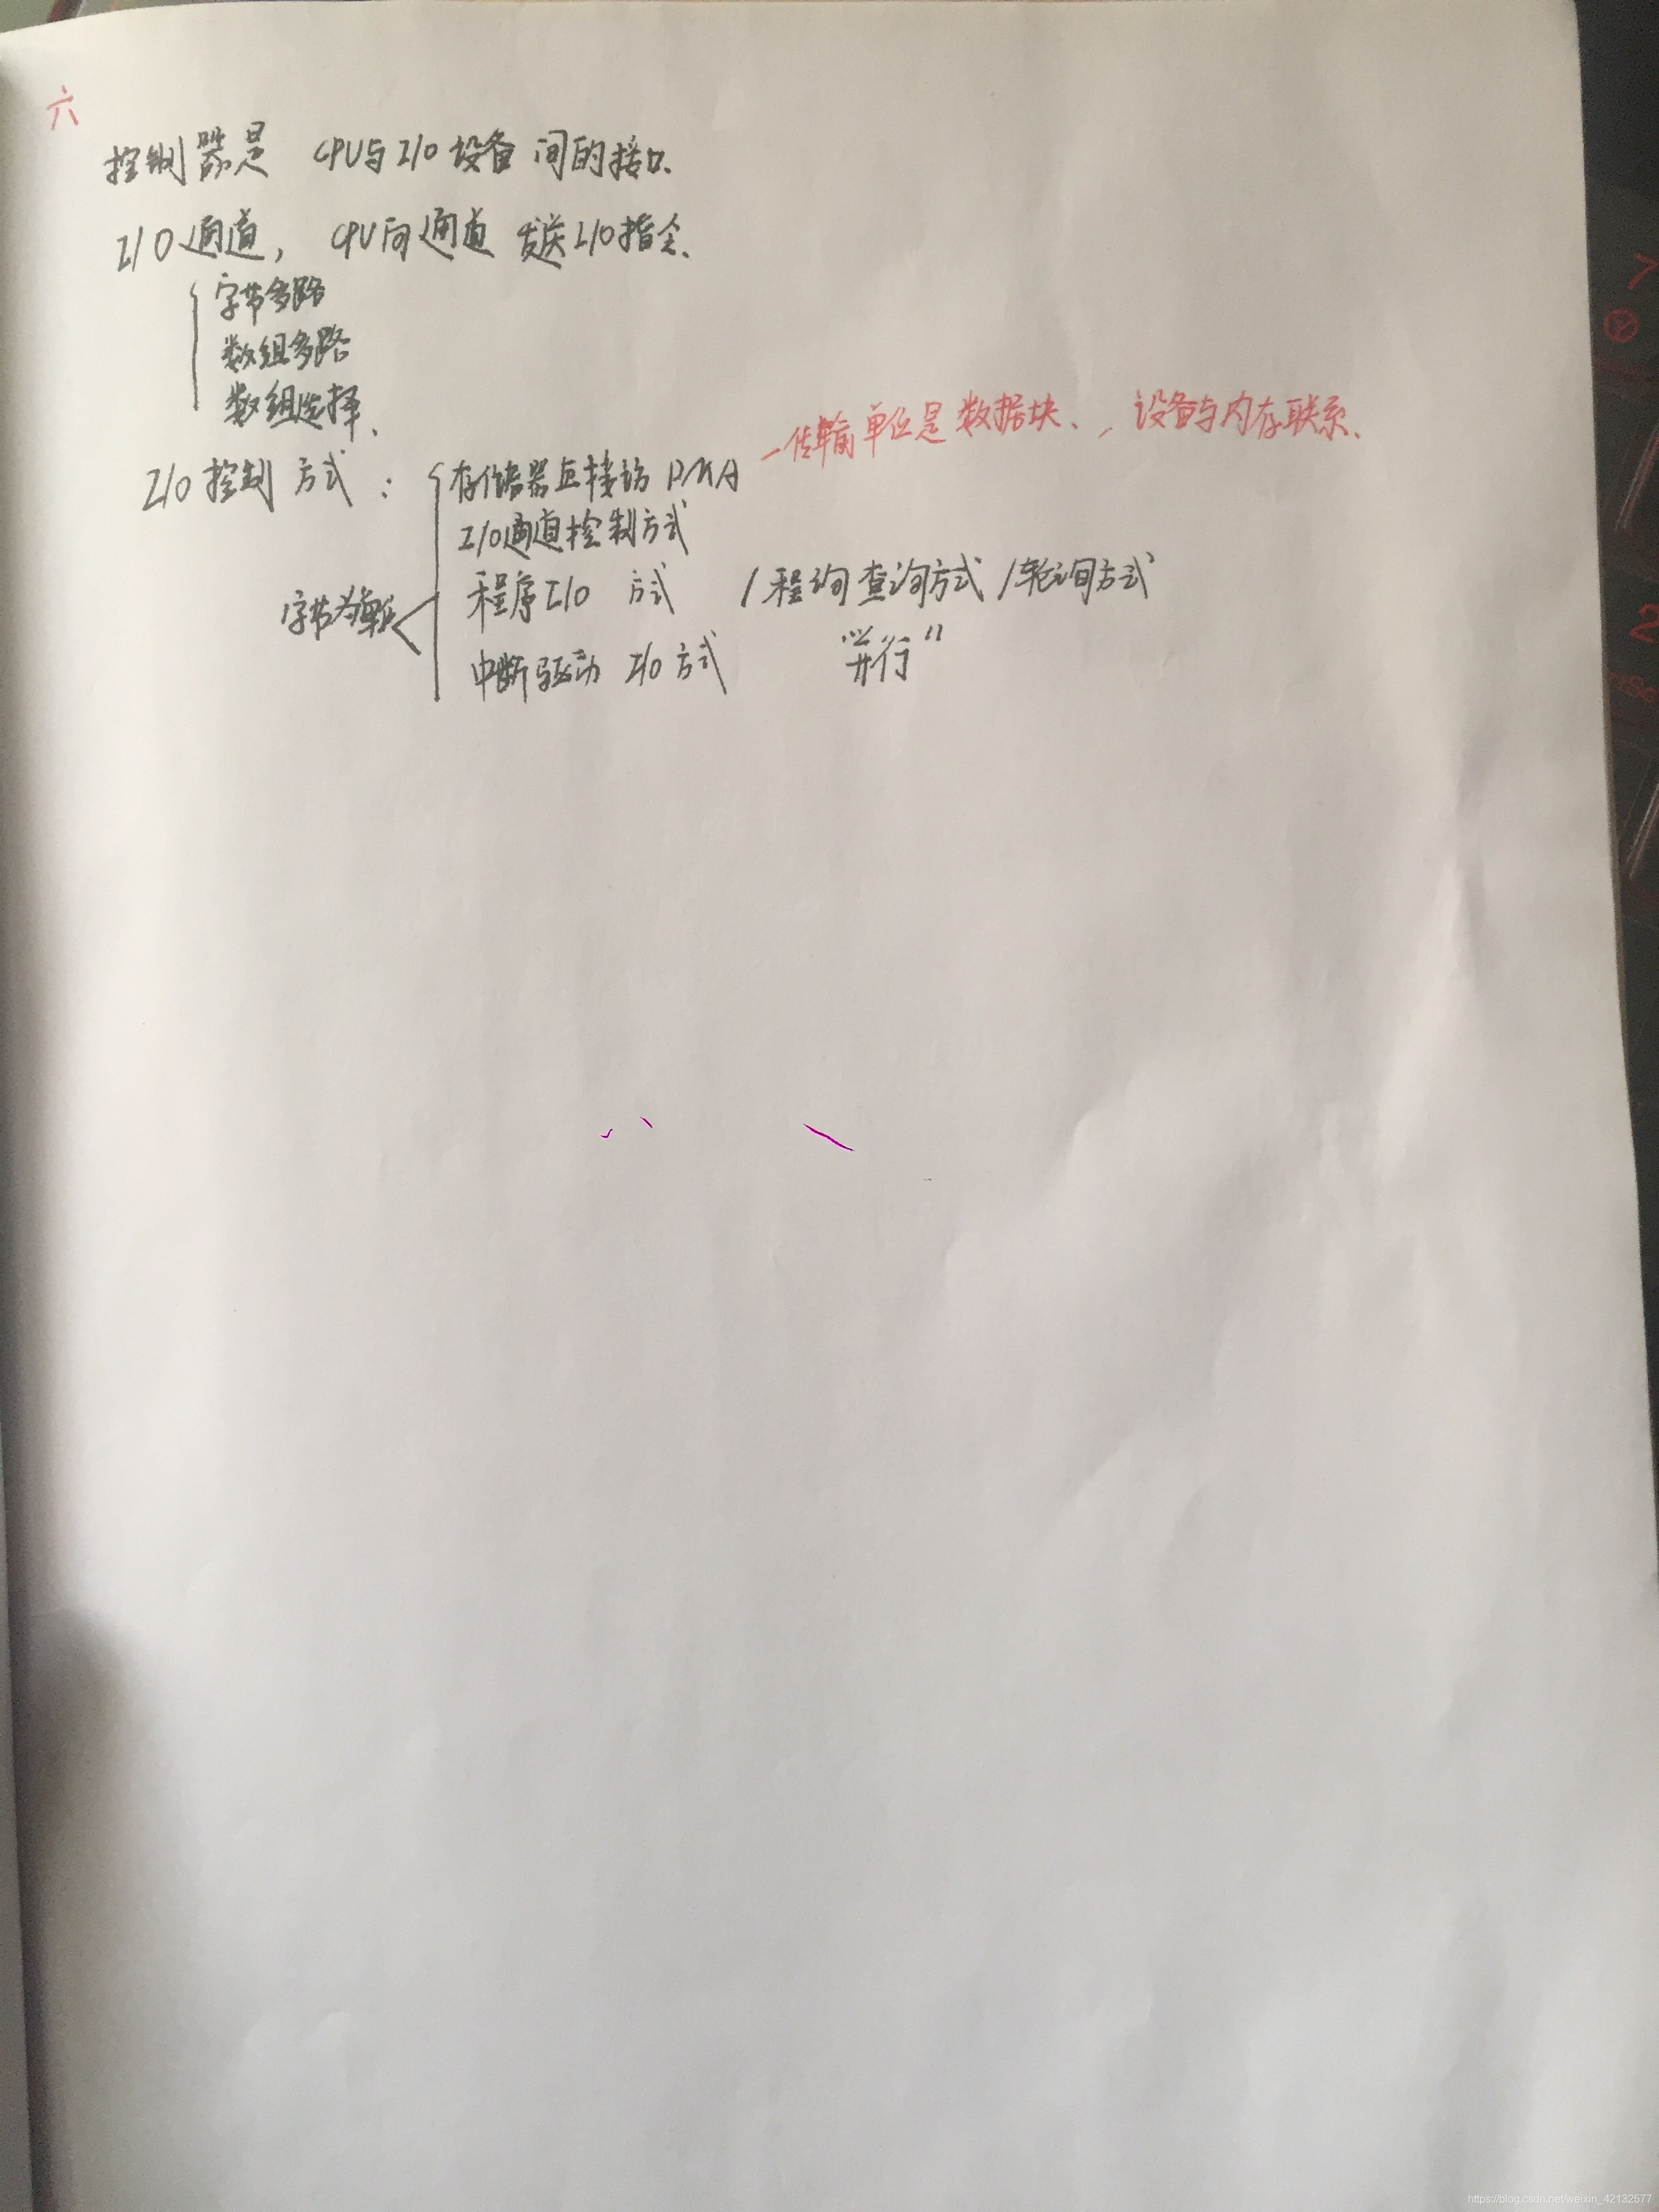 六
控制器是 CPU与I/O设备间的接口、
I/O通道, CPU向通道发送I/O指令、
字节多路
数组多路
数组选择、
I/O控制方式:
存储器直接访 DMA -传输单位是数据块、, 设备与内存联系、
I/O通道控制方式
字节为单位
程序I/O 方式 /程询查询方式/轮询方式
中断驱动 I/O方式 "并行"
https://blog.csdn.net/weixin_42132577